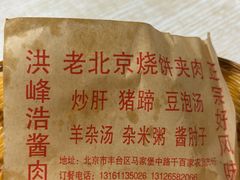 洪峰浩酱肉
老北京烧饼夹肉
炒肝 猪蹄 豆泡汤
羊杂汤 杂米粥 酱肘子
正宗好风味
地址:北京市丰台区马家堡中路千百家农贸市场
订餐电话:13161135026 13126582066